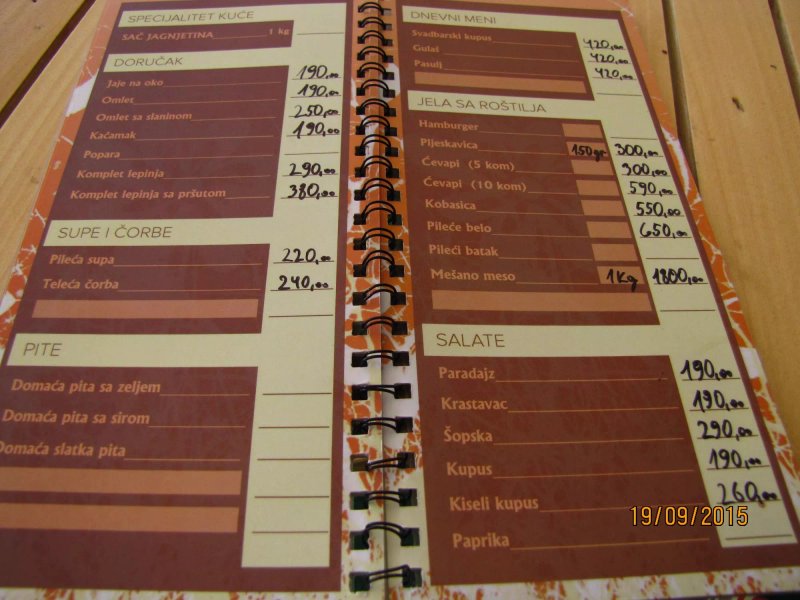 SPECIJALITET KUĆE
SAČ JAGNJETINA 1 kg
DORUČAK
Jaje na oko 190,00
Omlet 190,00
Omlet sa slaninom 250,00
Kačamak 190,00
Popara
Komplet lepinja 290,00
Komplet lepinja sa pršutom 380,00
SUPE I ČORBE
Pileća supa 220,00
Teleća čorba 240,00
PITE
Domaća pita sa zeljem
Domaća pita sa sirom
Domaća slatka pita
DNEVNI MENI
Svadbarski kupus 420,00
Gulaš 420,00
Pasulj 420,00
JELA SA ROŠTILJA
Hamburger
Pljeskavica 150gr 300,00
Ćevapi (5 kom) 300,00
Ćevapi (10 kom) 590,00
Kobasica 550,00
Pileće belo 650,00
Pileći batak
Mešano meso 1Kg 1800,00
SALATE
Paradajz 190,00
Krastavac 190,00
Šopska 290,00
Kupus 190,00
Kiseli kupus 260,00
Paprika
19/09/2015